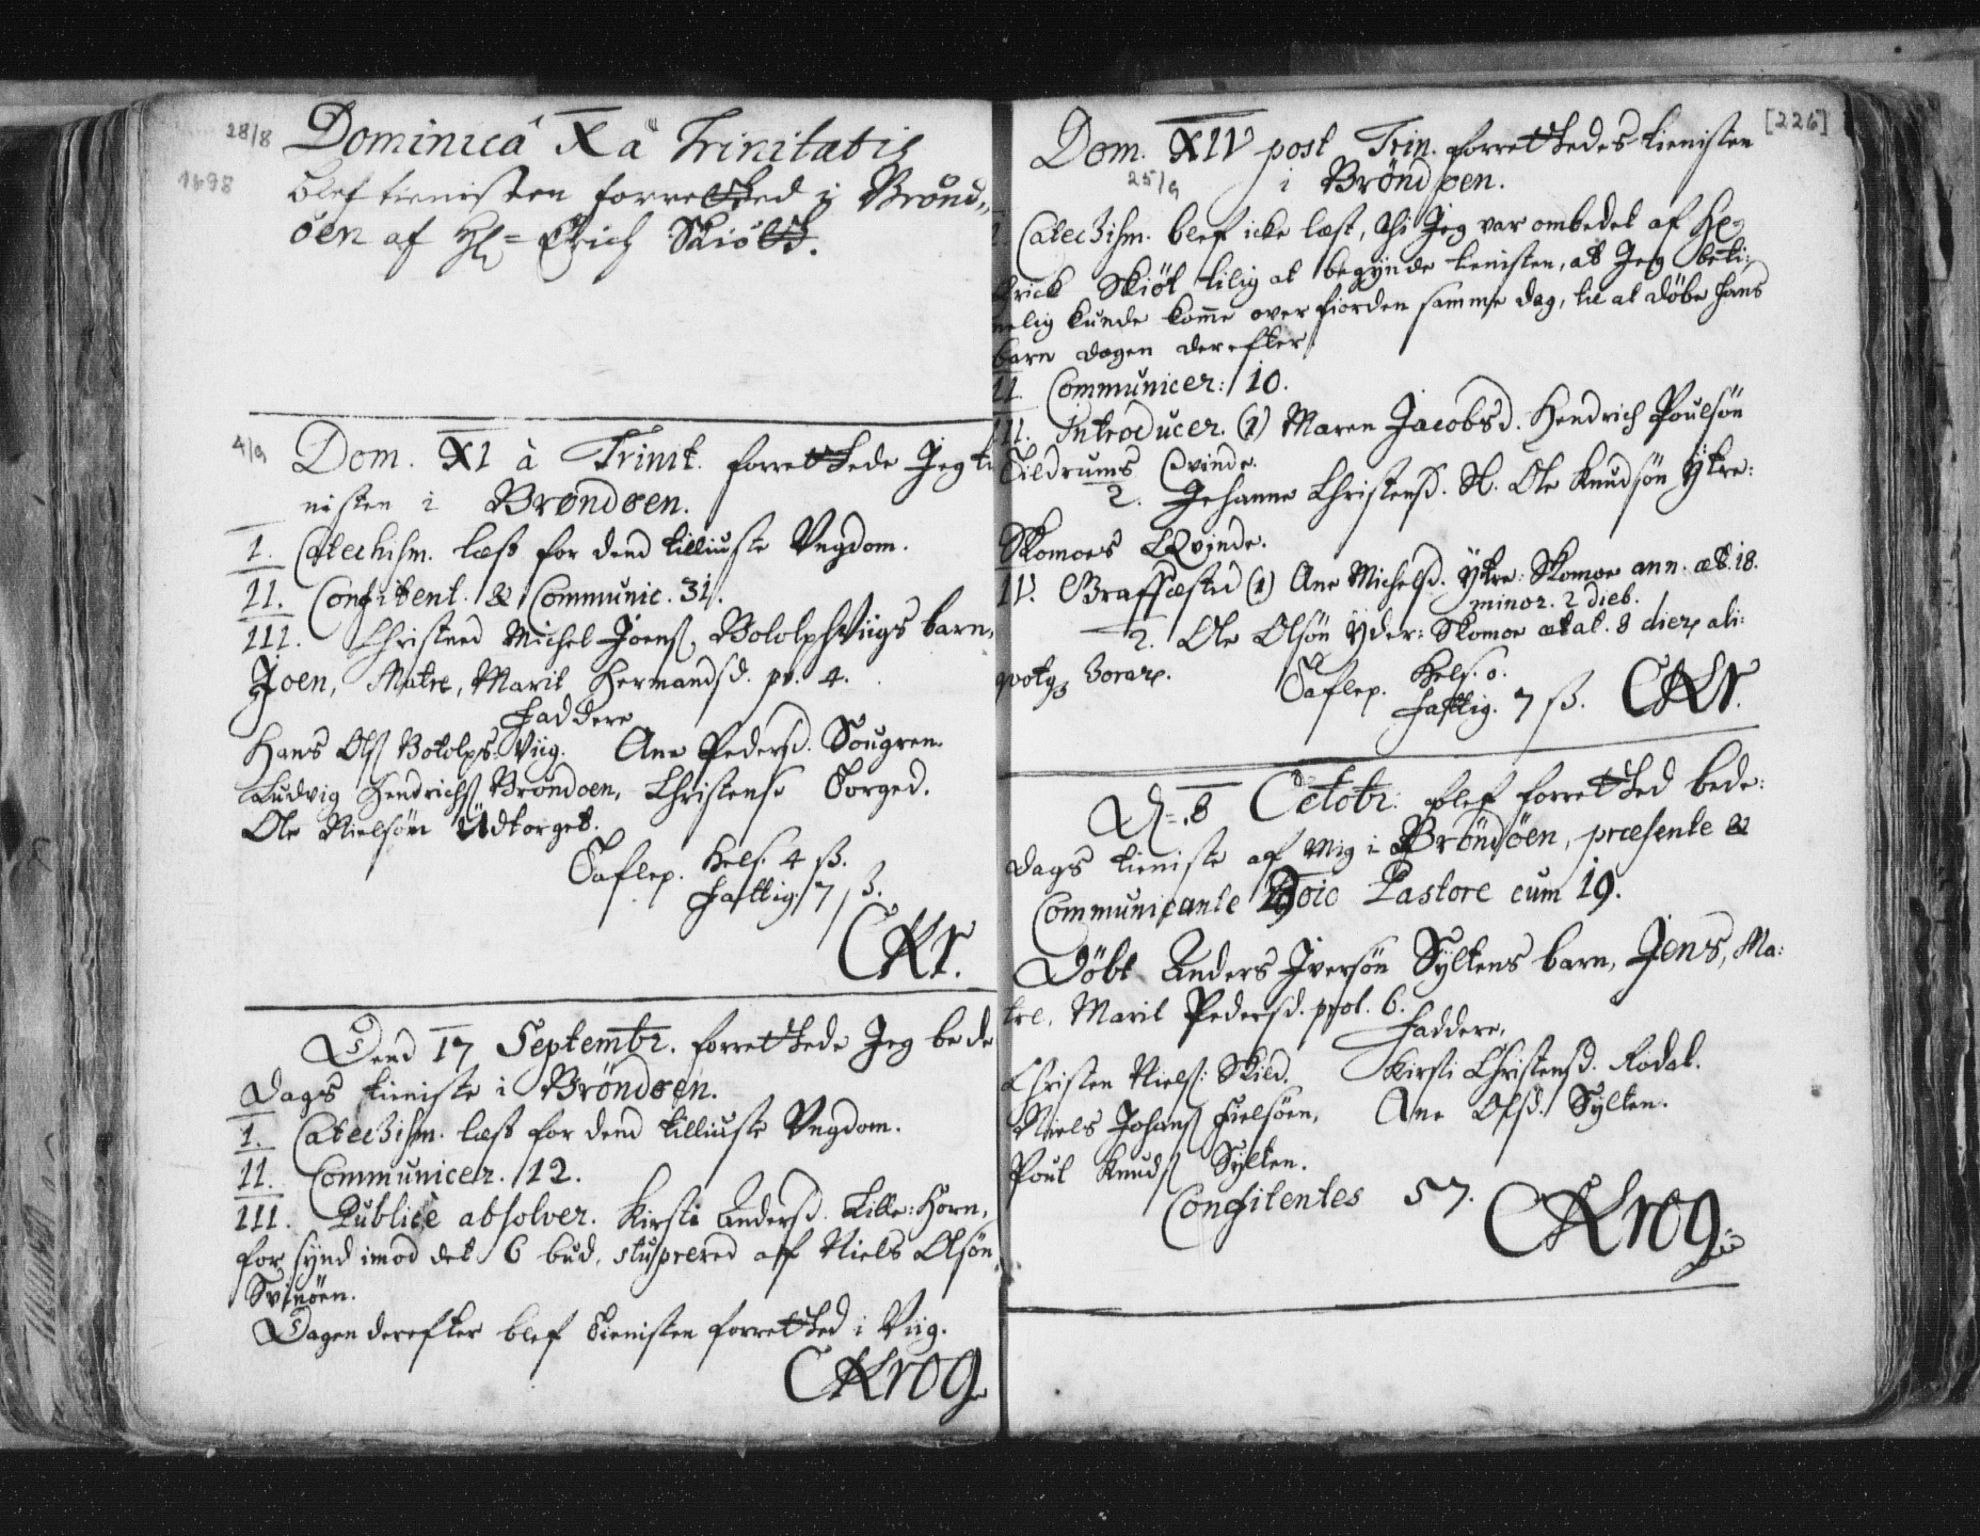 28/8
1698
Dominicâ X à Trinitatis
blef tienisten forrettted i Brønd„
øen af Hr= Erich Skiöltt.
4/9
Dom. XI à Trinit. forretttede Jeg ti
nisten i Brøndøen.
I. Catechism. læst for dend tilliuste Ungdom.
II. Confitent. & Communic. 31.
III. Christned Michel Joens. Bololphs Viigs barn,
Joen, Matre, Marit Hermandsd. pr. 4.
Faddere
Hans Ols Botolps: Viig. Ane Pedersd. Sougren.
Ludvig Hendrichs Brøndøen, Christense Torged.
Ole Nielsøn Üdtorget.
Taflep. Hels. 4 ß.
Fattig. 7 ß.
CKr.
Dend 17 Septembr. forretttede Jeg bede
dags tieniste i Brøndøen.
I. Catechism. læst for dend tilliuste Ungdom.
II. Communicer. 12.
III. Publicè absolver. Kirsti Andersd. Lille: Horn,
for synd imod det 6 bud, stuprered af Niels Olsøn
Svinöen.
Dagen derefter blef Tienisten forrettted i Viig.
CKrog
[226]
Dom. XIV post Trin. forretttedes tienisten
25/9 i Brøndøen.
I Catechism. blef icke læst, thi Jeg var ombedet af Hr
Erick Skiöt tilig at begynde tienisten, at Jeg beti:
melig kunde komme over fiorden samme dag, til at döbe hans
barn dagen derefter
II. Communicer: 10.
III. Introducer. (1) Maren Jacobsd. Hendrich Poulsøn
Tildrums Qvinde.
2. Johanne Christensd. Ole Knudsøn Ÿtre:
Skomoes Qvinde.
IV. Graffæsted (1) Ane Michelsd. Ÿtre: Skomoe ann. æt. 18.
minor. 2 dieb.
2. Ole Olsøn Yder: Skomoe ætat. 8 dier. ali:
qvotq horar.
Taflep. Hels. 0.
Fattig. 7 ß. CKr.
D= 8 Octobr. blef forrettted bede:
dags tieniste af Mig i Brøndöen, præsente &
Communicante Pastore cum 19.
Döbt Anders Jversøn Syltens barn, Jens, Ma:
tre, Marit Pedersd. prol. 6.
Faddere,
Christen Niels: Skild. Kirsti Christensd. Rodal.
Niels Johans Fielsöen, Ane Olsd. Sylten.
Poul Knuds Sylten.
Confitentes 57.
CKrog